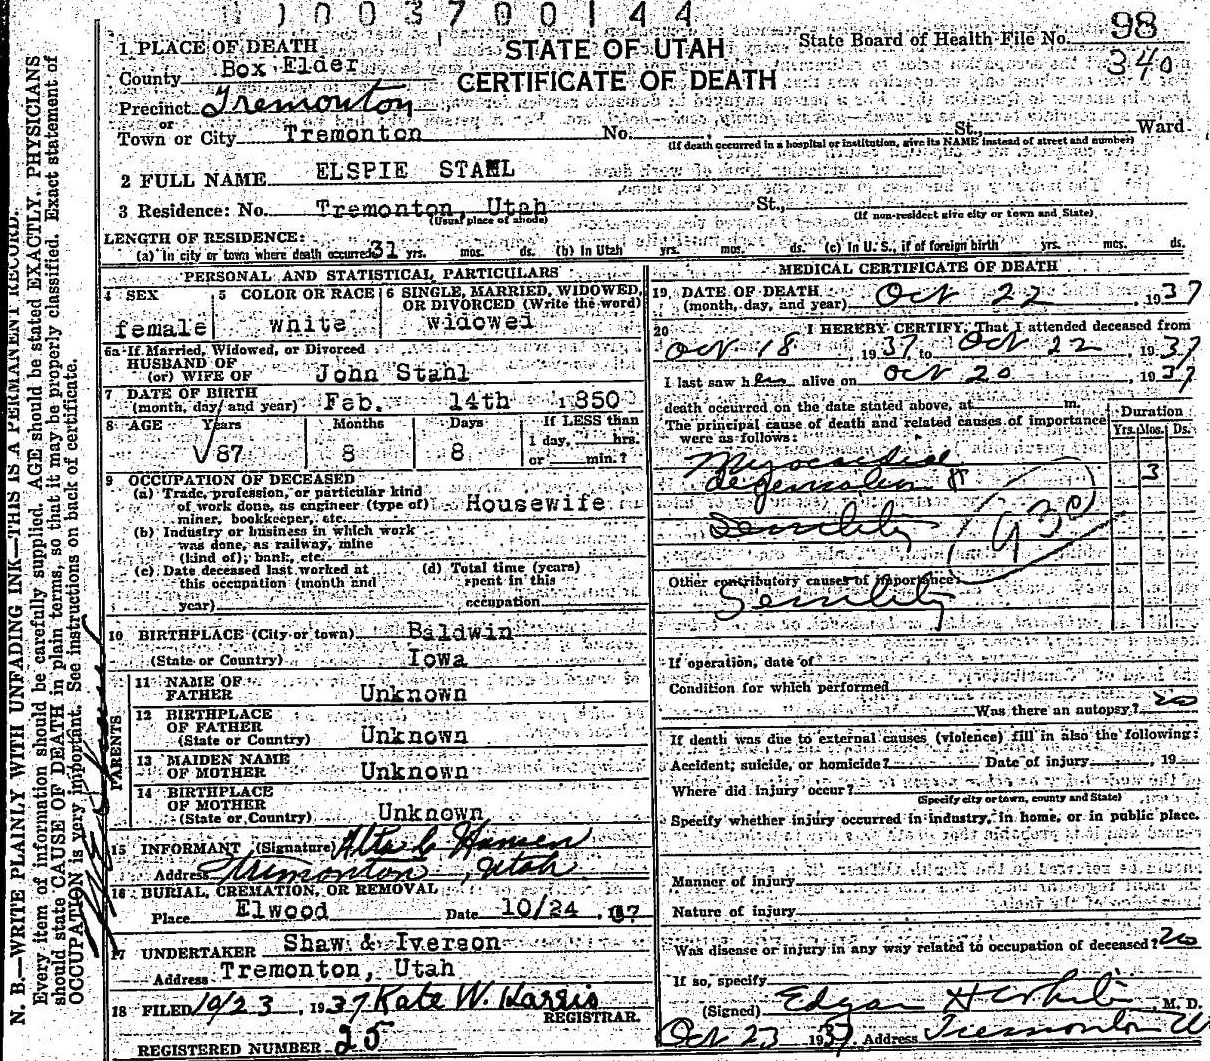 1003700144
STATE OF UTAH
CERTIFICATE OF DEATH
State Board of Health File No. 98
340
1 PLACE OF DEATH
County Box Elder
Precinct Tremonton
or
Town or City Tremonton No. , St., Ward
(If death occurred in a hospital or institution, give its NAME instead of street and number)
2 FULL NAME ELSPIE STAHL
3 Residence: No. Tremonton, Utah St.,
(Usual place of abode) (If non-resident give city or town and State)
LENGTH OF RESIDENCE:
(a) In city or town where death occurred 31 yrs. mos. ds. (b) In Utah yrs. mos. ds. (c) In U. S., if of foreign birth yrs. mos. ds.
PERSONAL AND STATISTICAL PARTICULARS
4 SEX
female
5 COLOR OR RACE
white
6 SINGLE, MARRIED, WIDOWED,
OR DIVORCED (Write the word)
widowed
6a If Married, Widowed, or Divorced
HUSBAND OF
(or) WIFE OF John Stahl
7 DATE OF BIRTH
(month, day, and year) Feb. 14th 1850
8 AGE Years Months Days If LESS than
87 8 8 1 day, hrs.
or min.?
9 OCCUPATION OF DECEASED
(a) Trade, profession, or particular kind
of work done, as engineer (type of) Housewife
miner, bookkeeper, etc.
(b) Industry or business in which work
was done, as railway, mine
(kind of); bank, etc.
(c) Date deceased last worked at
this occupation (month and
year)
(d) Total time (years)
spent in this
occupation
10 BIRTHPLACE (City or town) Baldwin
(State or Country) Iowa
PARENTS
11 NAME OF
FATHER Unknown
12 BIRTHPLACE
OF FATHER
(State or Country) Unknown
13 MAIDEN NAME
OF MOTHER Unknown
14 BIRTHPLACE
OF MOTHER
(State or Country) Unknown
15 INFORMANT (Signature) Alta C Hansen
Address Tremonton, Utah
16 BURIAL, CREMATION, OR REMOVAL
Place Elwood Date 10/24, 37
17 UNDERTAKER Shaw & Iverson
Address Tremonton, Utah
18 FILED 10/23, 1937 Kate W. Harris
REGISTRAR.
REGISTERED NUMBER 25
MEDICAL CERTIFICATE OF DEATH
19. DATE OF DEATH
(month, day, and year) Oct 22, 1937
20 I HEREBY CERTIFY, That I attended deceased from
Oct 18, 1937 to Oct 22, 1937
I last saw her alive on Oct 20, 1937
death occurred on the date stated above, at m.
The principal cause of death and related causes of importance
were as follows:
Duration
Yrs. Mos. Ds.
Myocardial
degeneration 3
Senility 930
Other contributory causes of importance:
Senility
If operation, date of
Condition for which performed
Was there an autopsy? no
If death was due to external causes (violence) fill in also the following:
Accident, suicide, or homicide? Date of injury , 19
Where did injury occur?
(Specify city or town, county and State)
Specify whether injury occurred in industry, in home, or in public place.
Manner of injury
Nature of injury
Was disease or injury in any way related to occupation of deceased? no
If so, specify
(Signed) Edgar H White M. D.
Oct 23 1937 Address Tremonton U
N. B.—WRITE PLAINLY WITH UNFADING INK—THIS IS A PERMANENT RECORD.
Every item of information should be carefully supplied. AGE should be stated EXACTLY. PHYSICIANS
should state CAUSE OF DEATH in plain terms, so that it may be properly classified. Exact statement of
OCCUPATION is very important. See instructions on back of certificate.